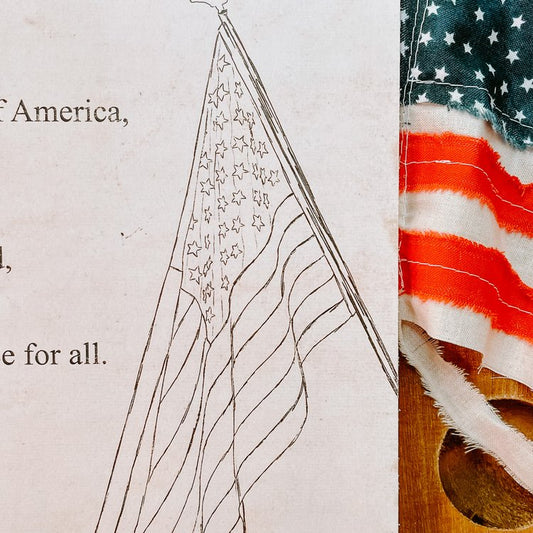 f America,
d,
e for all.